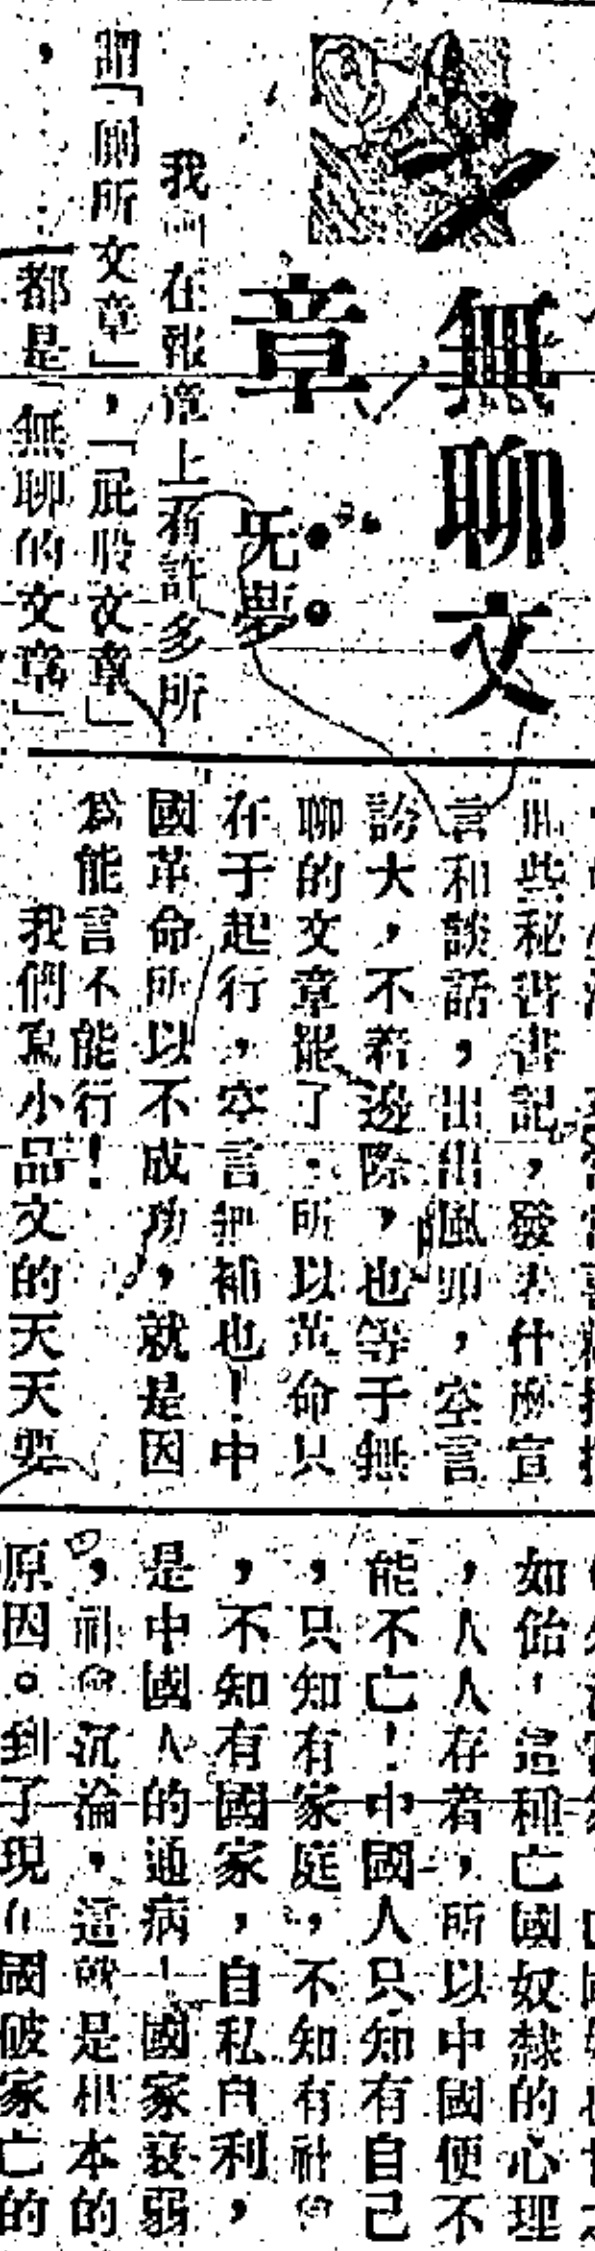 無聊文
章
旡夢
我們在報章上有許多所
謂「廁所文章」，「屁股文章」
，都是「無聊的文章」
些秘書書記，發表什麽宣
言和談話，出出風頭，空言
誇大，不着邊際，也等于無
聊的文章罷了，所以革命只
在于起行，空言無補也！中
國革命所以不成功，就是因
爲能言不能行！
我們寫小品文的天天要
如飴，這種亡國奴隸的心理
，人人存着，所以中國便不
能不亡！中國人只知有自己
，只知有家庭，不知有社會
，不知有國家，自私自利，
是中國人的通病！國家衰弱
，社會沉淪，這就是根本的
原因。到了現在國破家亡的